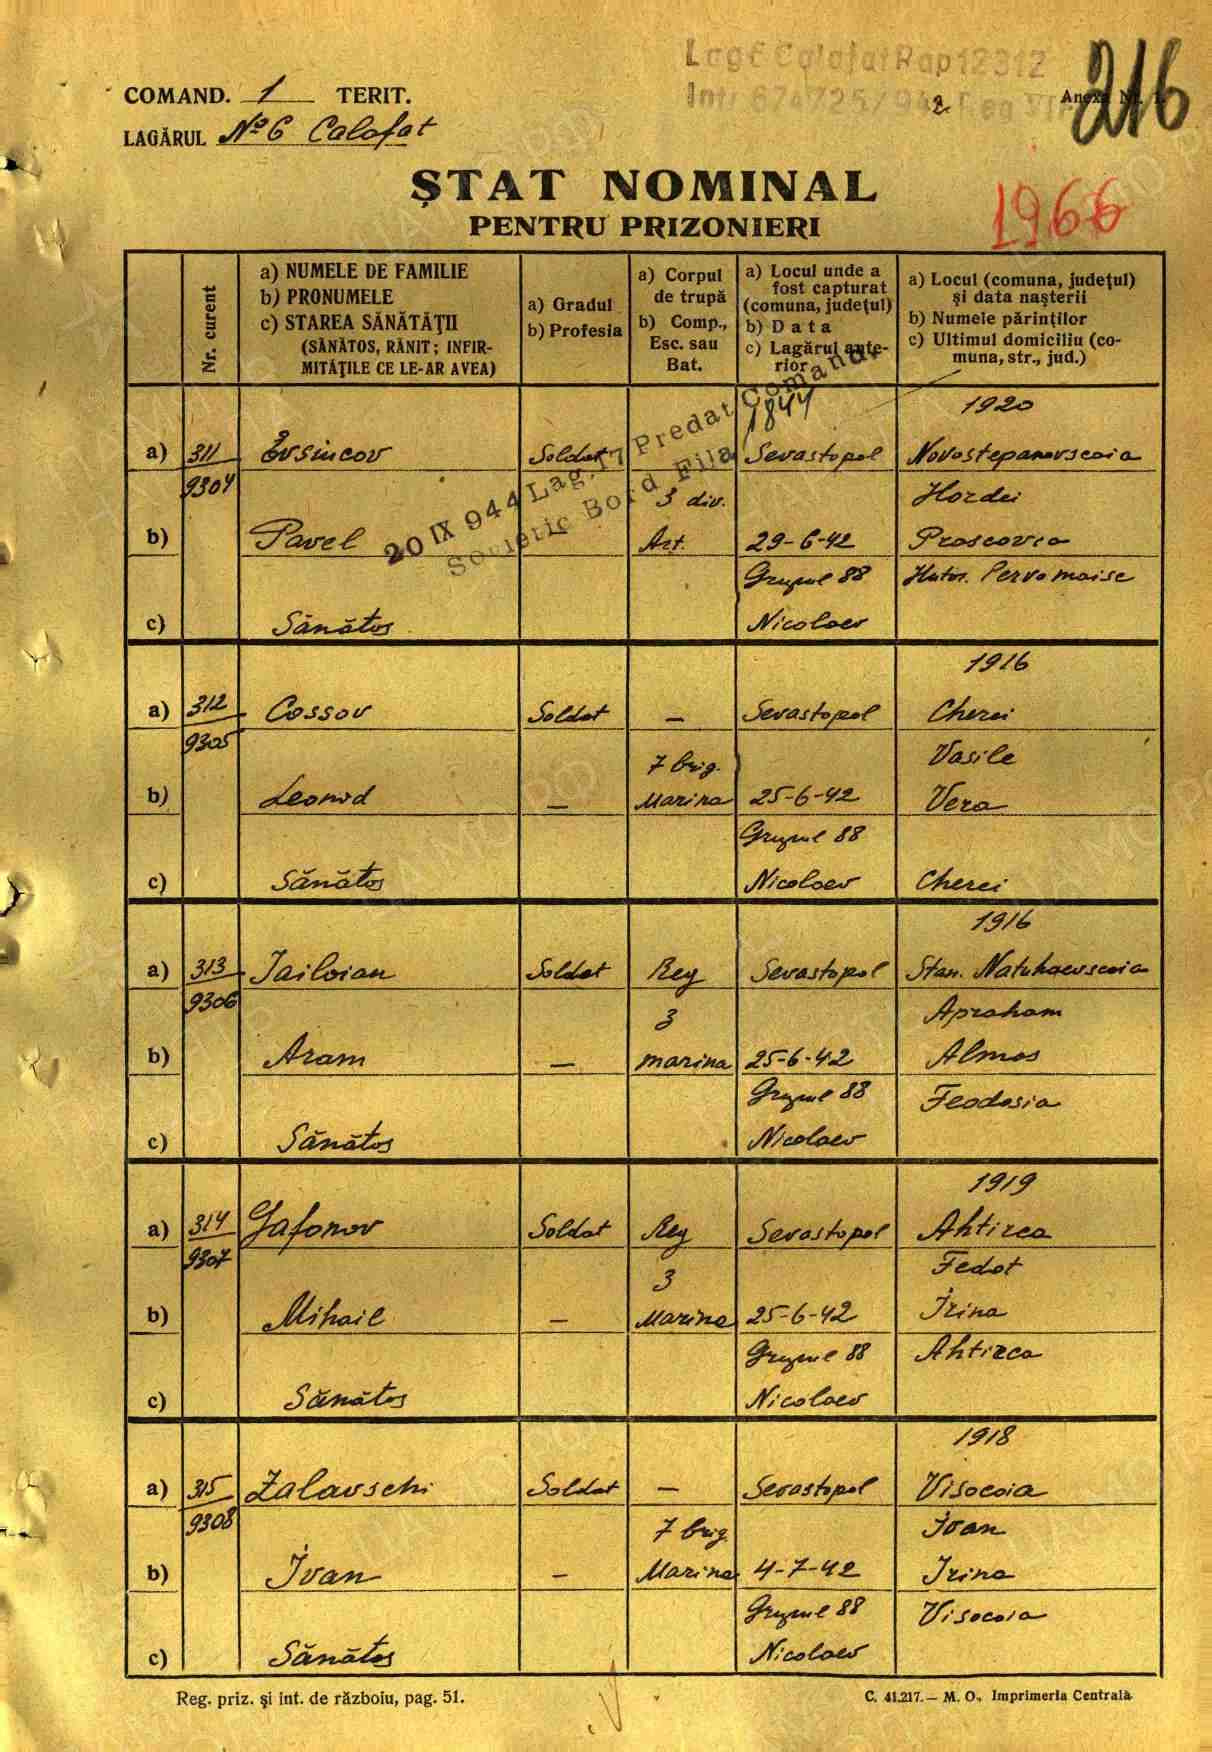 Lag 6 Calafat Rap 12312
COMAND. 1 TERIT.
Anexa Nr. 1.
216
LAGĂRUL Nº 6 Calafat
ȘTAT NOMINAL
PENTRU PRIZONIERI
1966
Nr. curent
a) NUMELE DE FAMILIE
b) PRONUMELE
c) STAREA SĂNĂTĂȚII
(SĂNĂTOS, RĂNIT; INFIR-
MITĂȚILE CE LE-AR AVEA)
a) Gradul
b) Profesia
a) Corpul
de trupă
b) Comp.,
Esc. sau
Bat.
a) Locul unde a
fost capturat
(comuna, județul)
b) Data
c) Lagărul ante-
rior
a) Locul (comuna, județul)
și data nașterii
b) Numele părinților
c) Ultimul domiciliu (co-
muna, str., jud.)
20 IX 944 Lag. 17 Predat Comand.
Sovietic Bord Fila 1844
1920
a) 311 Evsincov Soldat Sevastopol Novostepanovscaia
9304 3 div. Hordei
b) Pavel — Art. 29-6-42 Proscovia
Grupul 88 Hutor. Pervomaisc
c) Sănătos Nicolaev
1916
a) 312 Cossov Soldat — Sevastopol Cherci
9305 7 brig. Vasile
b) Leonid — Marina 25-6-42 Vera
Grupul 88
c) Sănătos Nicolaev Cherci
1916
a) 313 Iailoian Soldat Reg Sevastopol Stan. Natuhaevscaia
9306 3 Apraham
b) Aram — marina 25-6-42 Almas
Grupul 88 Feodosia
c) Sănătos Nicolaev
1919
a) 314 Gafonov Soldat Reg Sevastopol Ahtirca
9307 3 Fedot
b) Mihail — Marina 25-6-42 Irina
Grupul 88 Ahtirca
c) Sănătos Nicolaev
1918
a) 315 Zalavschi Soldat — Sevastopol Visocoia
9308 7 brig. Ivan
b) Ivan — Marina 4-7-42 Irina
Grupul 88 Visocoia
c) Sănătos Nicolaev
Reg. priz. și int. de războiu, pag. 51.
C. 41.217.— M. O., Imprimeria Centrală.